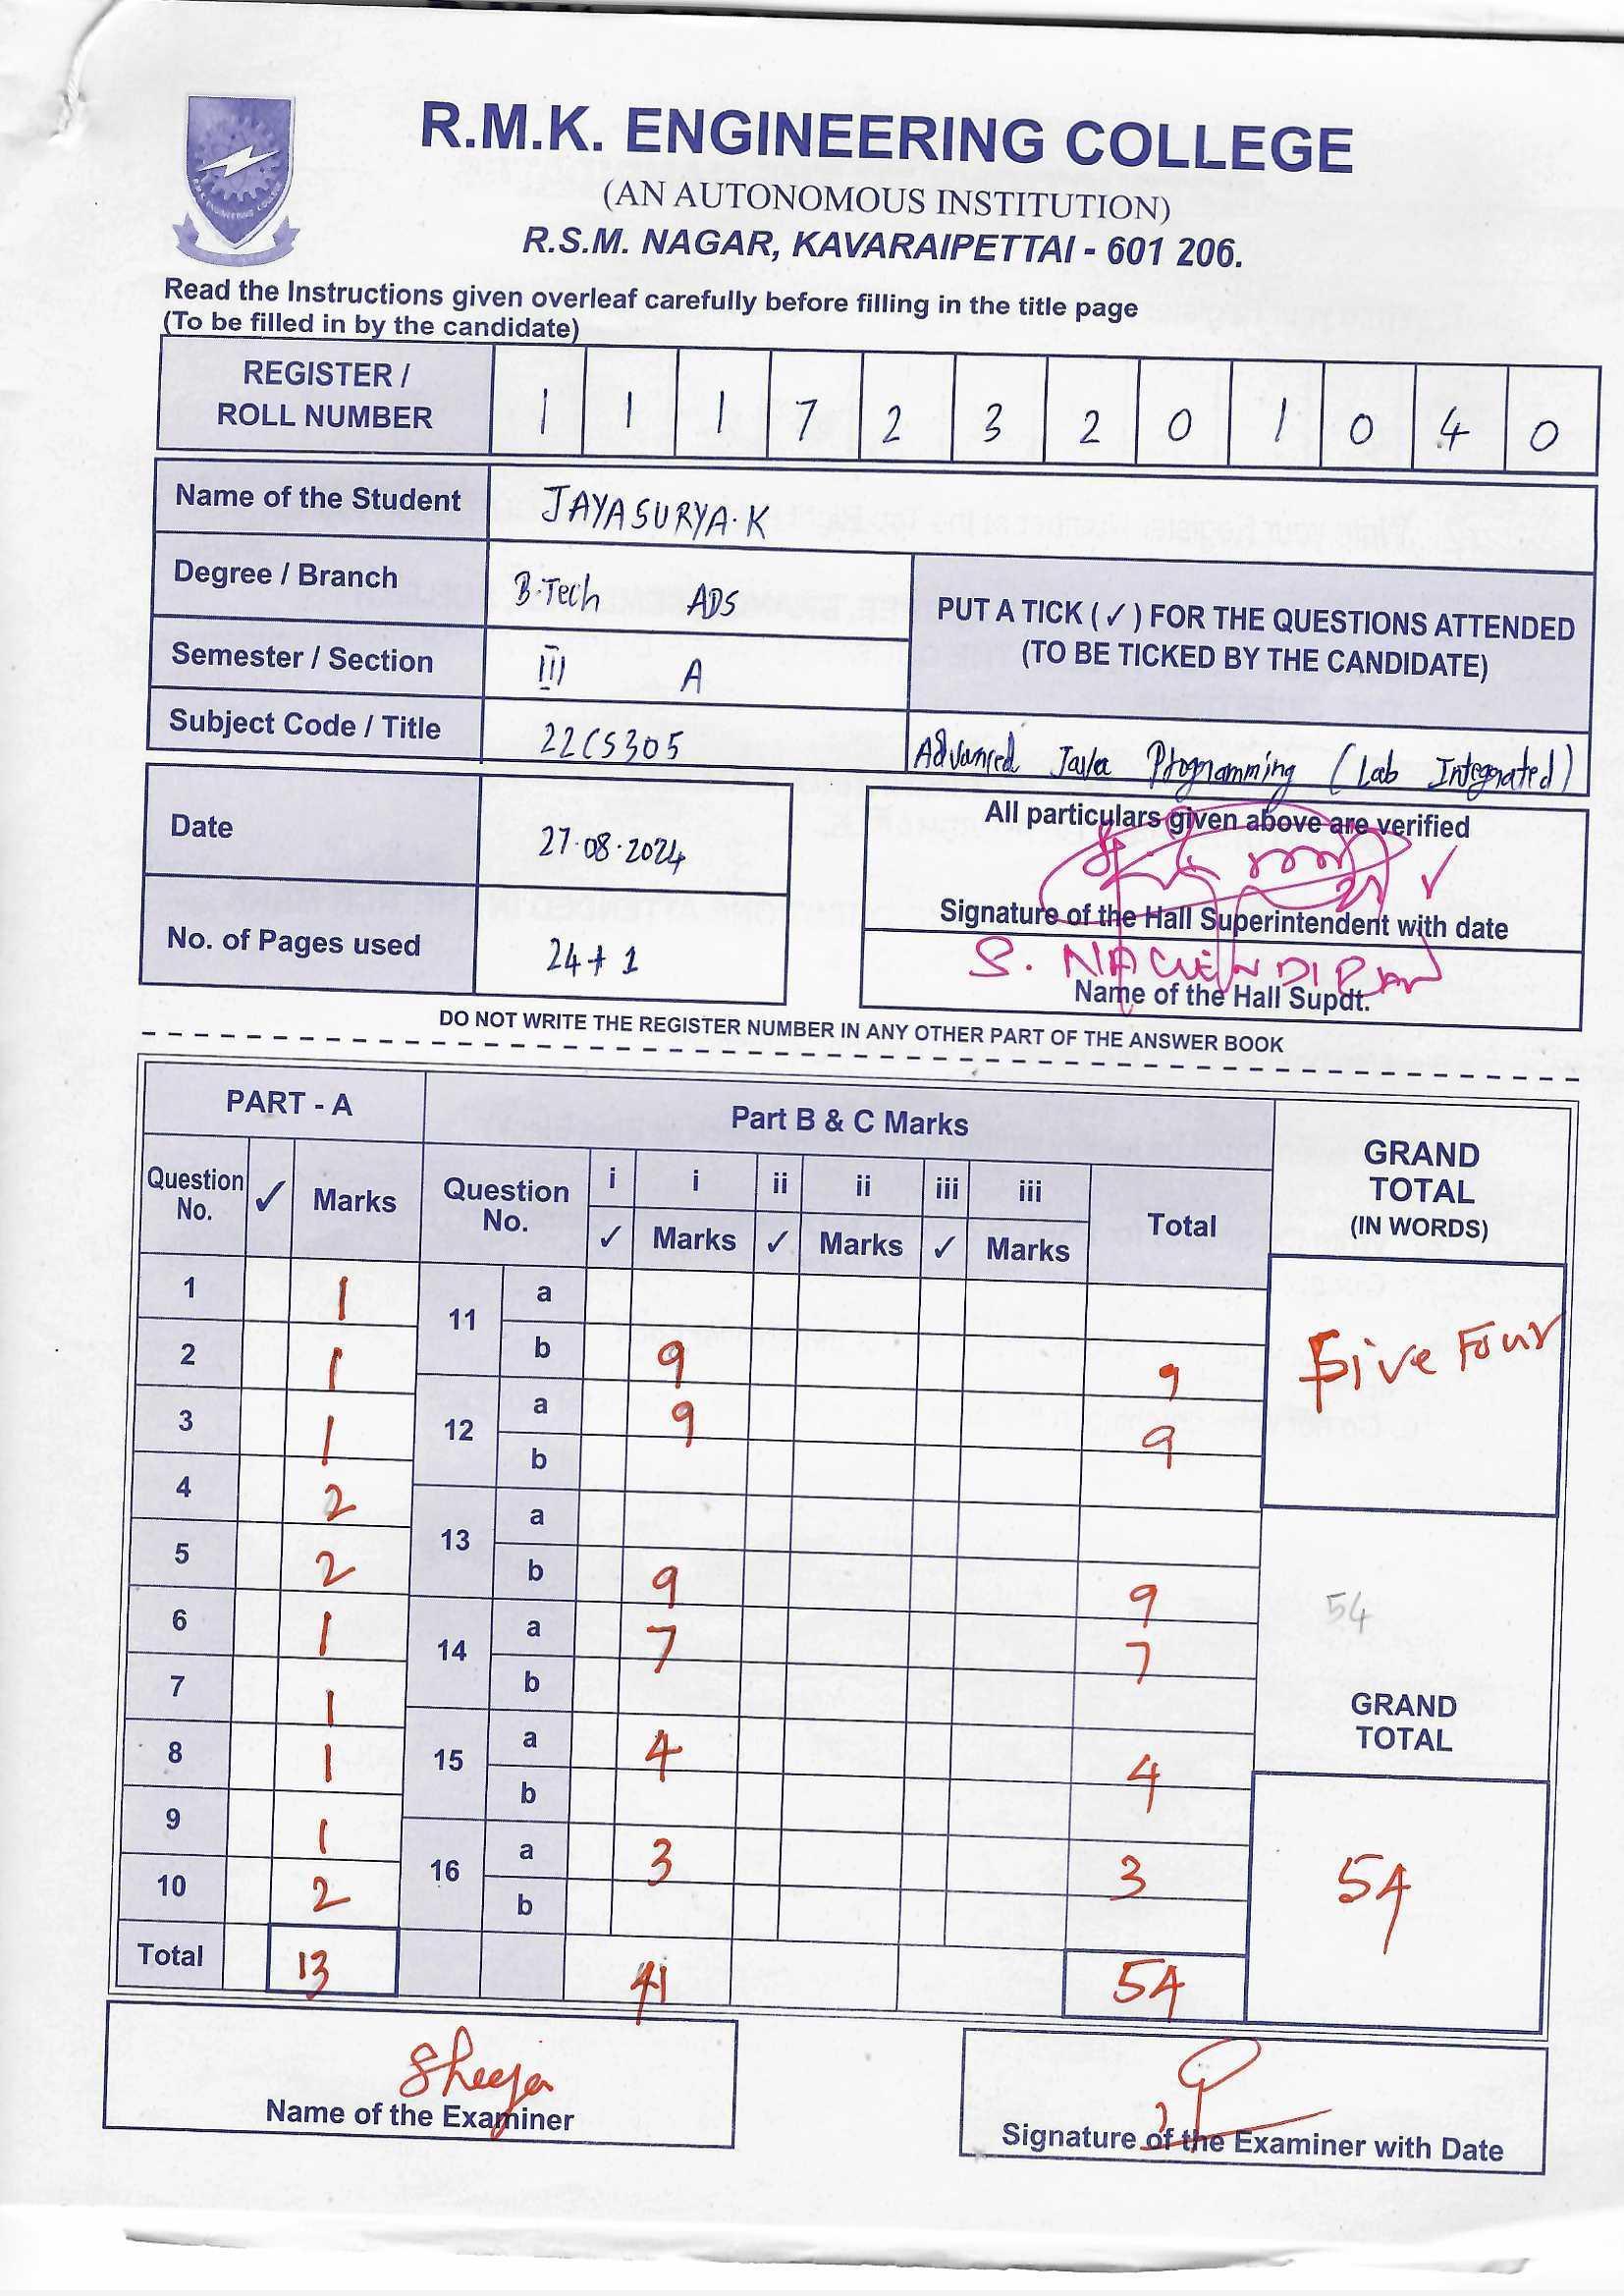 R.M.K. ENGINEERING COLLEGE
(AN AUTONOMOUS INSTITUTION)
R.S.M. NAGAR, KAVARAIPETTAI - 601 206.
Read the Instructions given overleaf carefully before filling in the title page
(To be filled in by the candidate)
REGISTER / ROLL NUMBER 1 1 1 7 2 3 2 0 1 0 4 0
Name of the Student JAYASURYA.K
Degree / Branch B.Tech ADS
PUT A TICK (✓) FOR THE QUESTIONS ATTENDED
(TO BE TICKED BY THE CANDIDATE)
Semester / Section III A
Subject Code / Title 22CS305 Advanced Java Programming (Lab Integrated)
Date 27.08.2024
All particulars given above are verified
✓
Signature of the Hall Superintendent with date
No. of Pages used 24+1
S.
Name of the Hall Supdt.
DO NOT WRITE THE REGISTER NUMBER IN ANY OTHER PART OF THE ANSWER BOOK
PART - A Part B & C Marks GRAND TOTAL (IN WORDS)
Question No. ✓ Marks Question No. i i ii ii iii iii Total
✓ Marks ✓ Marks ✓ Marks
1 1 11 a
2 1 b 9 9 Five Four
3 1 12 a 9 9
4 2 b
5 2 13 a
b 9 9 54
6 1 14 a 7 7
7 1 b GRAND TOTAL
8 1 15 a 4 4
9 1 b
10 2 16 a 3 3 54
b
Total 13 41 54
Sheeja
Name of the Examiner
Signature of the Examiner with Date